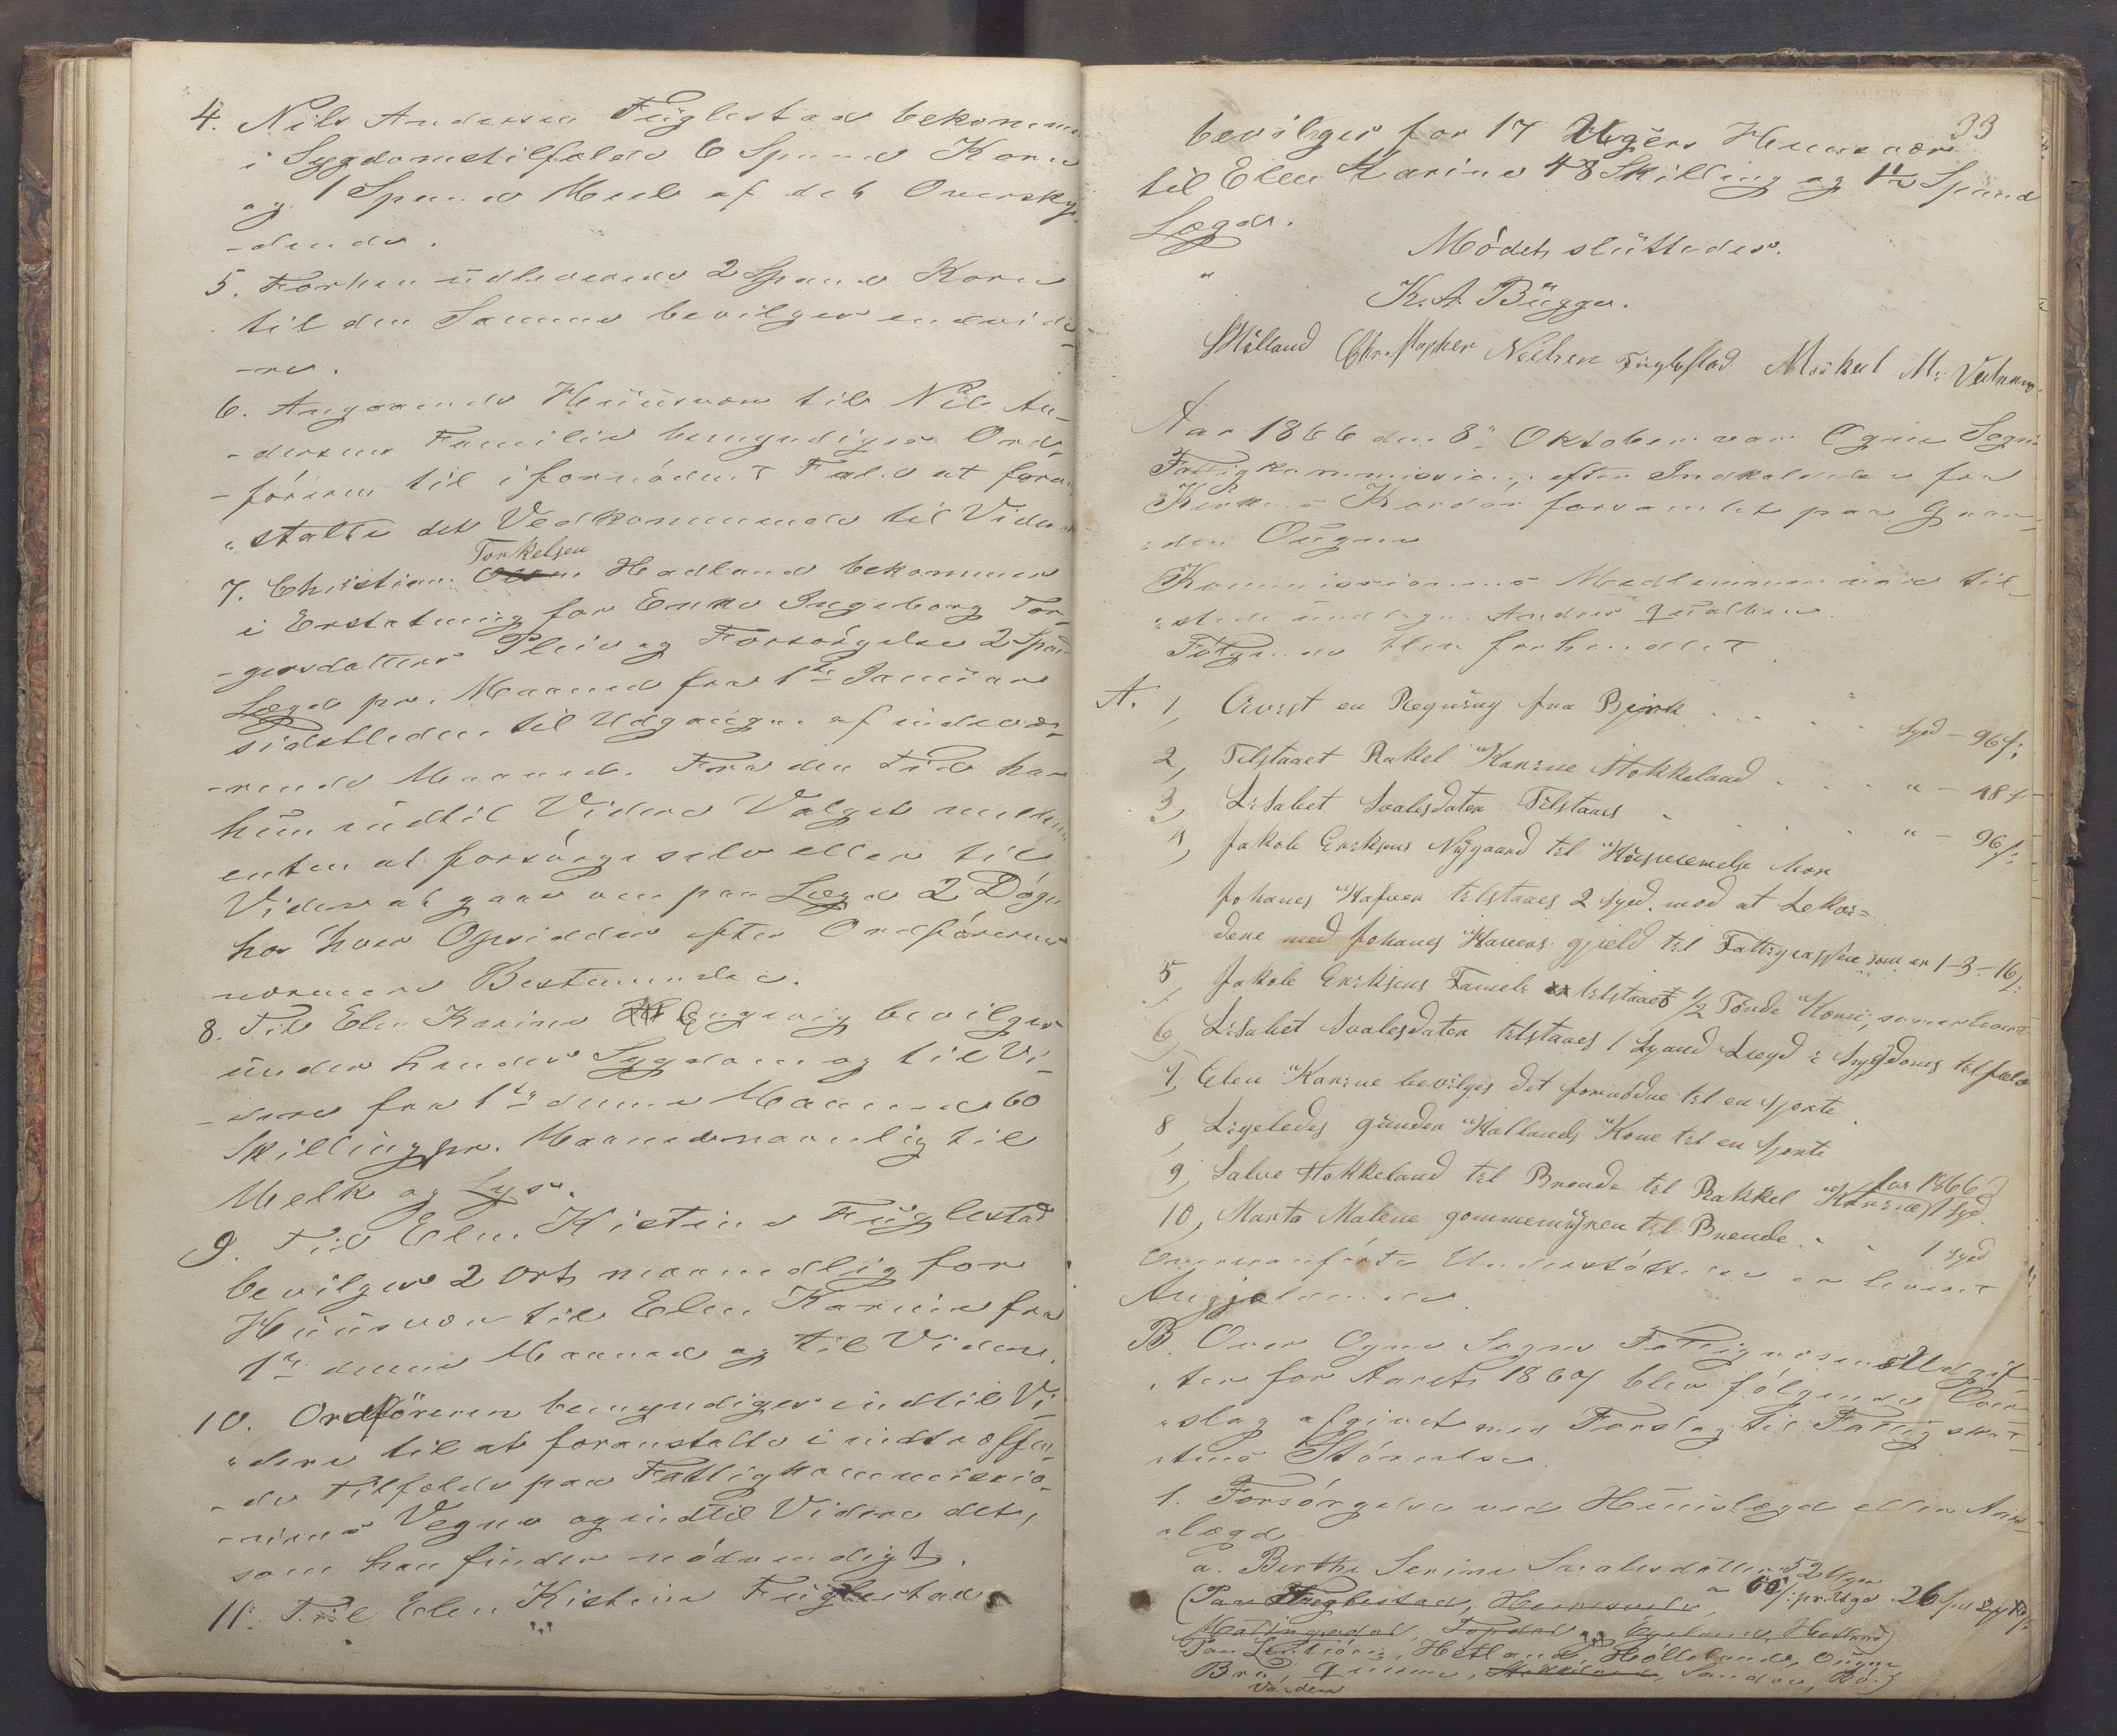 4. Nils Andersen Fuglestad bekommer
i Sygdomstilfælde 6 Spand Korn
og 1 Spand Meel af det Oversky-
-dende.
5. Forhen udleverede 2 Spand Korn
til den Samme bevilges endvide-
-re.
6. Angaaende Huusvær til Nils An-
-dersens Familie bemyndiges Ord-
-föreren til i fornödent Fald at foran-
"stalte det Vedkommende til Videre
7. Christian Torkelsen Hadland bekommer
i Erstatning for Enke Ingeborg Tor-
-gersdatters Pleie og Forsörgelse 2 Spand
Lægd pr. Maaned fra 1ste Januar
sidstleden til Udgangen af indevæ-
-rende Maaned. Fra den Tid har
hun indtil Videre Valget mellem
enten at forsörge selv eller til
Videre at gaae om paa Lægd 2 Dögn
hos hver Opsidder efter Ordförerens
nærmere Bestemmelse.
8. Til Elen Karine Engevig bevilges
under hendes Sygdom og til Vi-
-dere fra 1ste denne Maaned 60
Skilling pr. Maaned navnlig til
Melk og Lys.
9. Til Elen Kistine Fuglestad
bevilges 2 Ort maanedlig for
Huusvær til Elen Karine fra
1ste denne Maaned og til Videre.
10. Ordföreren bemyndiges indtil Vi-
"dere til at foranstalte i indtræffen-
-de Tilfælde paa Fattigkommissio-
-nens Vegne og indtil Videre det,
som han finder nödvendigt.
11. Til Elen Kistine Fuglestad
33
bevilges for 17 Ugers Huusvær
til Elen Karine 48 Skilling og 1½ Spand
Lægd.
Mödet sluttedes.
K. A. Bügge.
Christopher Nielsen Fuglestad
Aar 1866 den 8de Oktober var Ogne Sogns
Fattigkommission efter Indkaldelse fra
forsamlet paa Gaar-
"den Ougne
Kommissionens Medlemmer var til-
"stede undtagen Andres Qualbein.
Fölgende blev forhandlet
A. 1, Avist en Regning fra Bjerk . . . . Spd - 96 s:
2, Tilstaaet Rakel Karine Stokkeland . . . " - 48 s
3, Lisabet Svalesdater Tilstaaes . . . " - 96 s:
4, Jakob Eriksens Nygaard til Huusværelse
Johanes Hafver tilstaaes 2 Spd. mod at
dere med Johanes Havers gjeld til Fattigcassen som er 1-3-16 s:
5, Jakob Eriksens Familie tilstaaet ½ Tönde Korn,
6, Lisabet Svalesdater tilstaaes 1 Spand Lægd i Sygdoms tilfælde
7, Elen Karine bevilges det fornödne til en Sjorte.
8, Ligeledes Gunder Hallands Kone til en Sjorte
9, Salve Stokkeland til Brende til Rakkel Karine for 1866 1 Spd.
10, Marta Malene Gommemyren til Brende . . 1 Spd
Ovenanförte Understöttelse er
B. Over Ogne Sogns Fattigvæsens Udgif-
"ter for Aaret 1867 blev fölgende Over-
"slag afgivet med Forslag til Fattigskat-
"tens Störrelse.
1. Forsörgelse ved Huuslægd eller
"lægd
a. Berthe Serine Svalesdatter 52 Uger
(Paa Fuglestad,
Hetland)
Hetland, Höllland, Ougne
Bru, Sandve, Bö.)